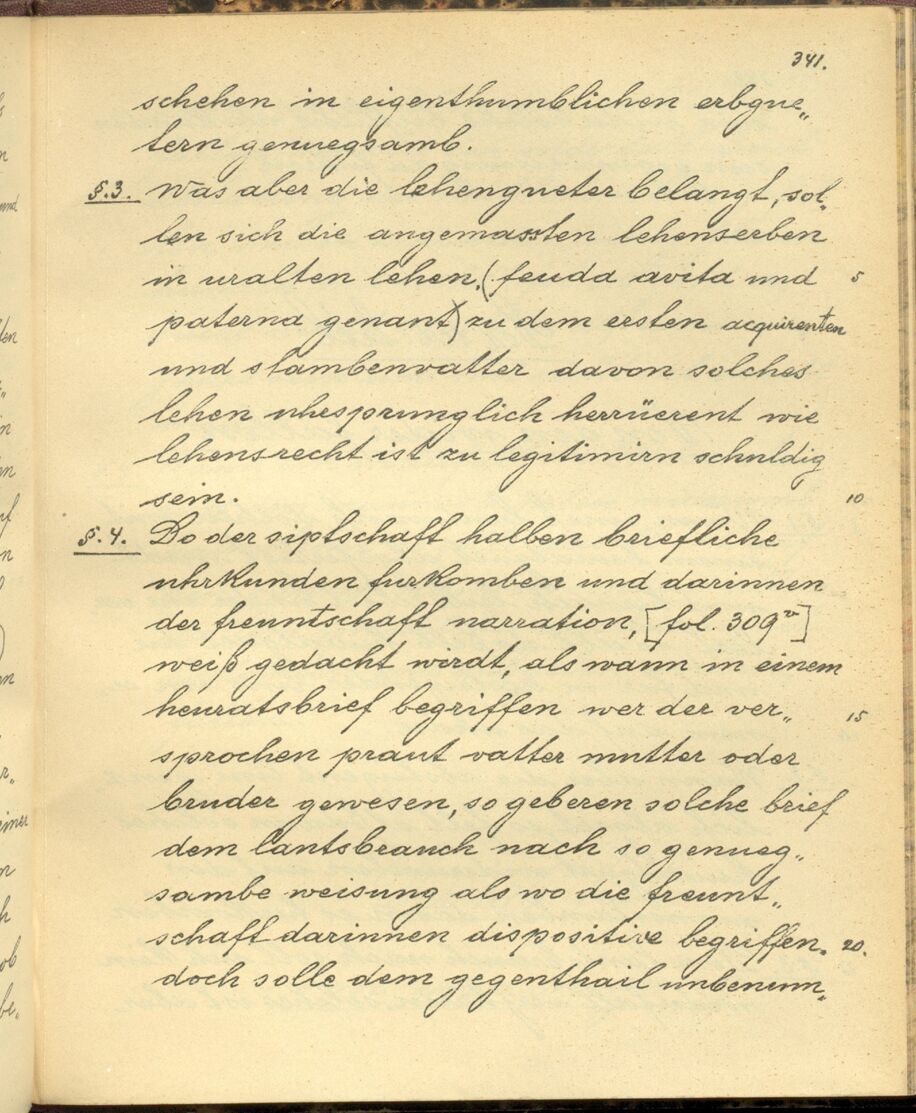 341.
schehen in eigenthumblichen erbgue„
tern genuegsamb.
§.3. Was aber die lehengueter belangt, sol„
len sich die angemassten lehenserben
in uralten lehen, (feuda avita und 5
paterna genant) zu dem ersten acquirenten
und stambenvatter davon solches
lehen uhesprunglich herrüerent wie
lehensrecht ist zu legitimirn schuldig
sein. 10
§.4. Do der siptschaft halben briefliche
uhrkunden furkomben und darinnen
der freuntschaft narration, [fol. 309
weiß gedacht wirdt, als wann in einem
heuratsbrief begriffen wer der ver„ 15
sprochen praut vatter mutter oder
bruder gewesen, so geberen solche brief
dem lantsbrauch nach so genueg„
sambe weisung als wo die freunt„
schaft darinnen dispositive begriffen. 20.
doch solle dem gegenthail unbenum„